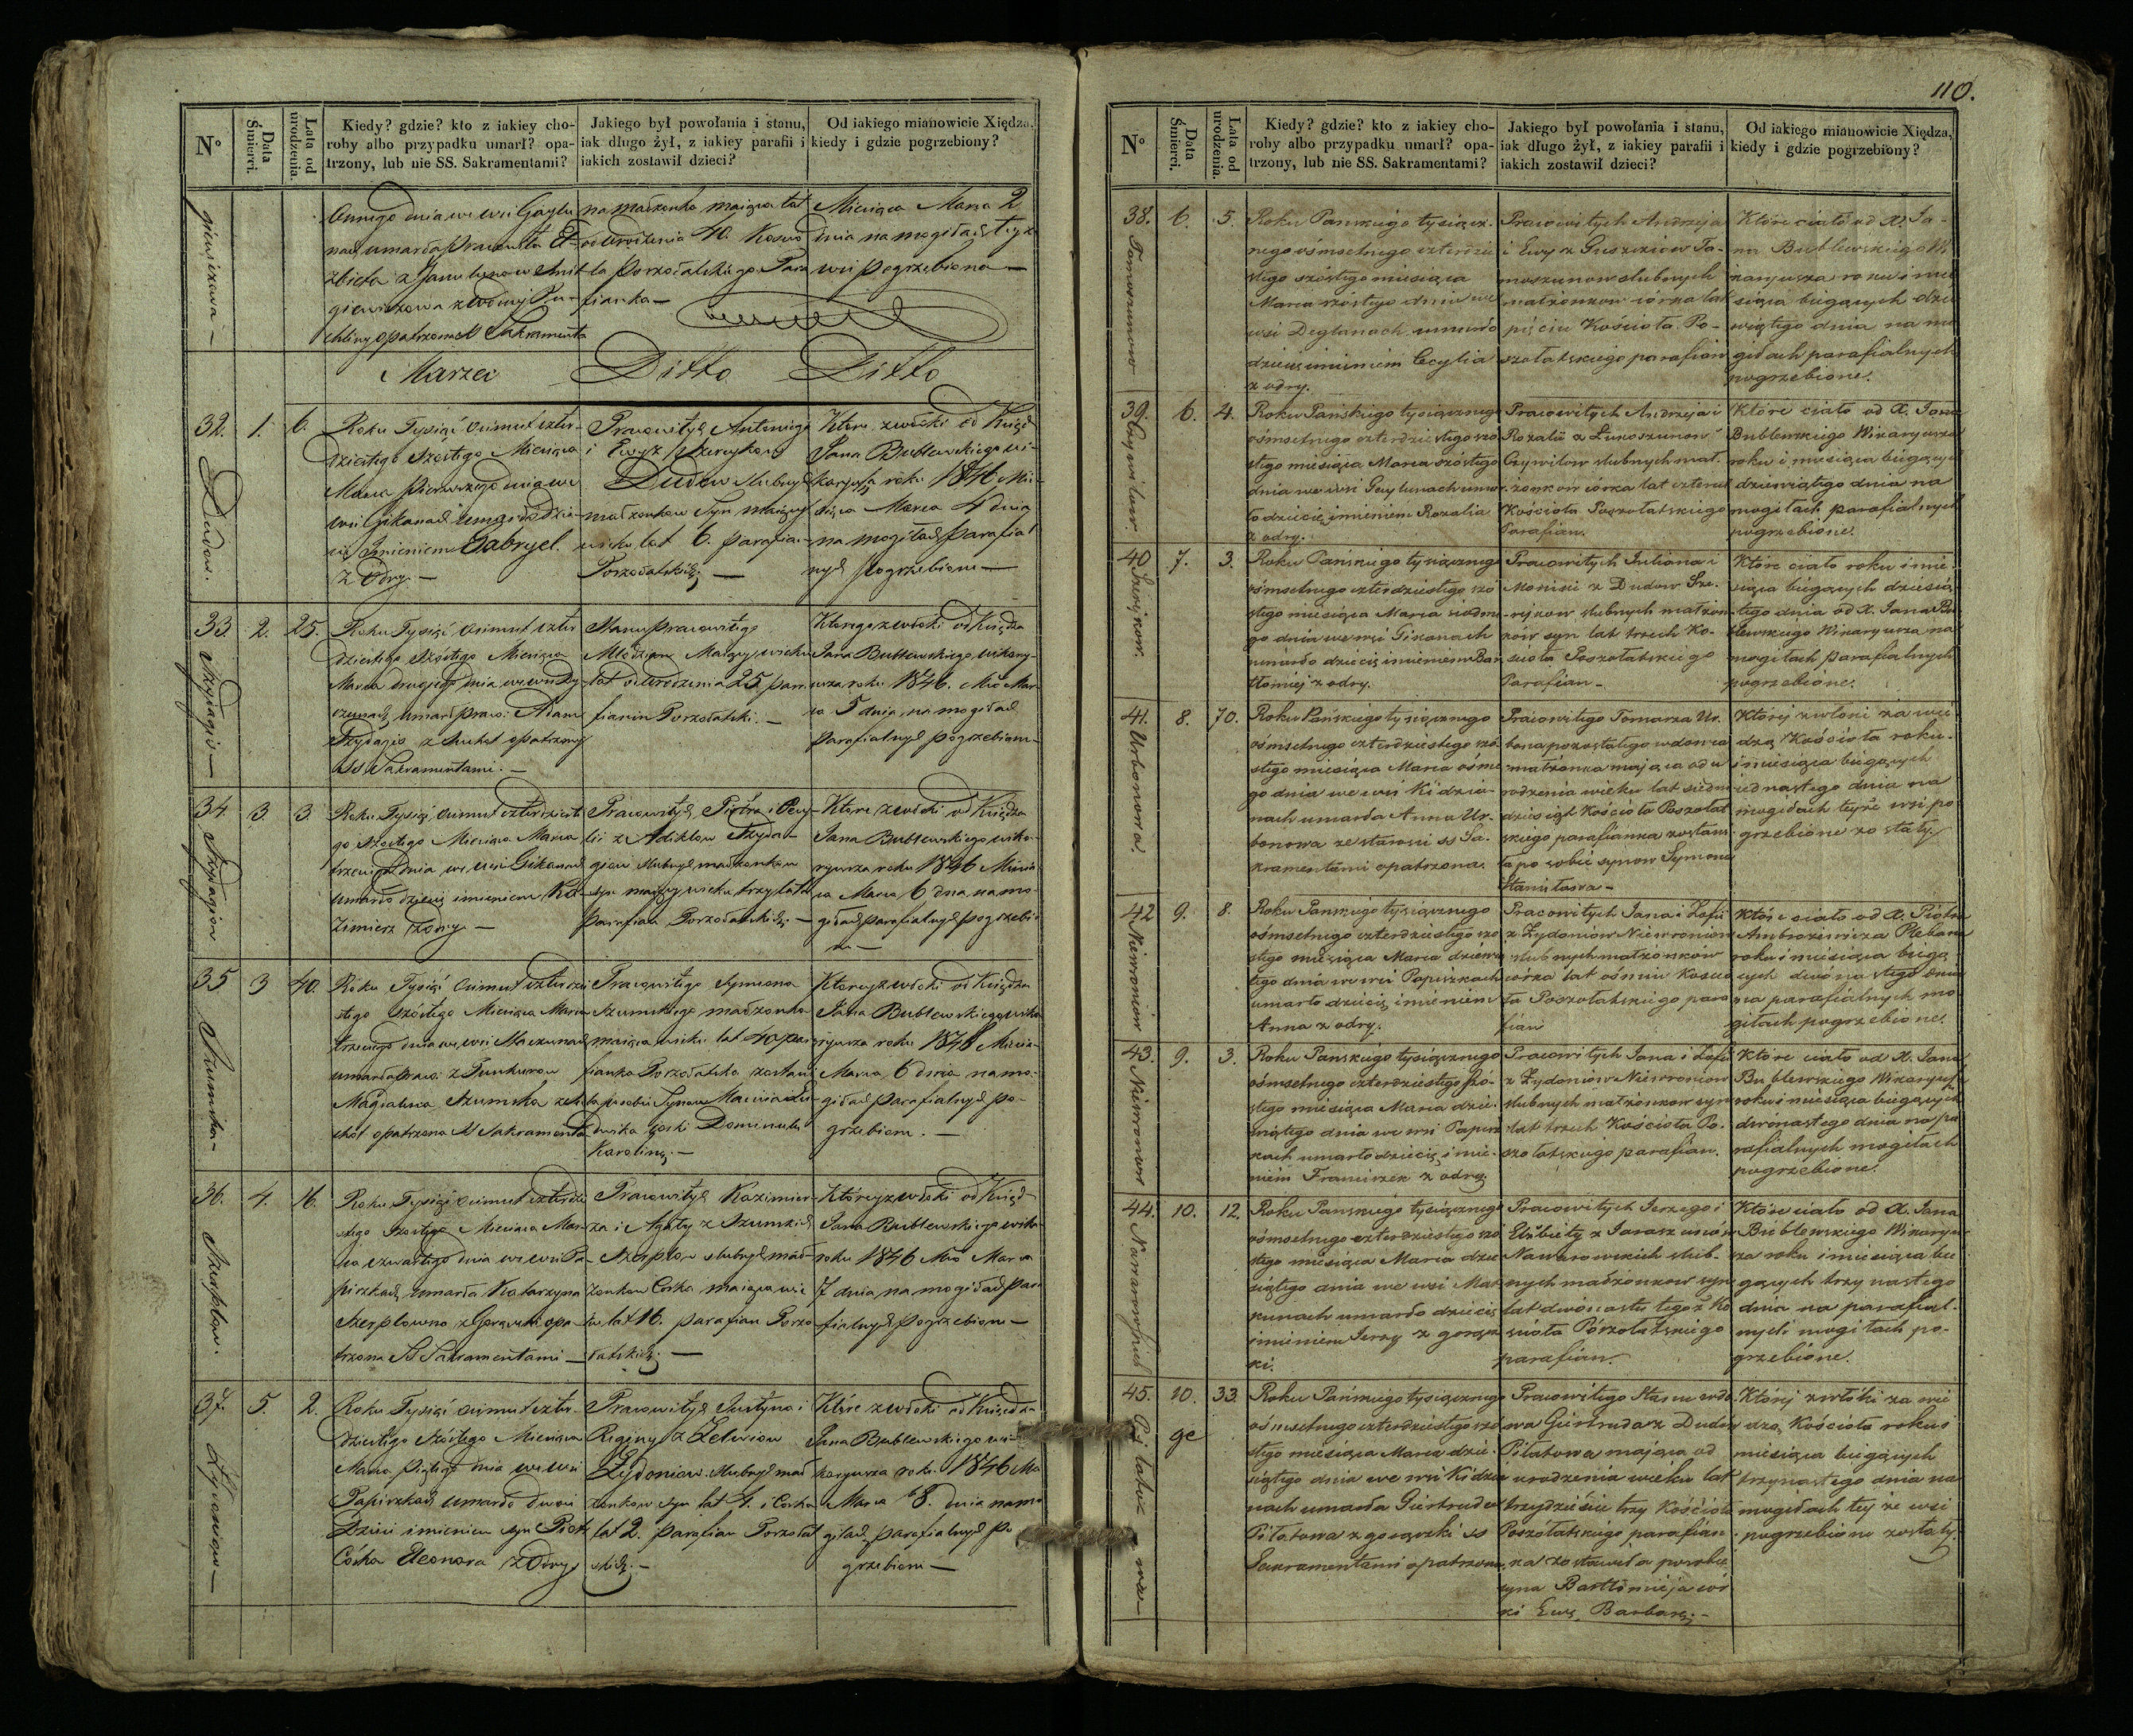 N°
Data Śmierci.
Lata od urodzenia.
Kiedy? gdzie? kto z iakiey cho-
roby albo przypadku umarł? opa-
trzony, lub nie SS. Sakramentami?
Jakiego był powołania i stanu,
iak długo żył, z iakiey parafii i
iakich zostawił dzieci?
Od iakiego mianowicie Xiędza,
kiedy i gdzie pogrzebiony?
giewiczowa —
nach umarła Pracowita El-
żbieta z
giewiczowa z
opatrzona SS Sakramenta
na małżonka maiąca lat
od urodzenia 40. Koscio
ła Poszołatskiego Para
fianka —
Miesiąca Marca 2
dnia na mogiłach teyż
wsi pogrzebiona —
Marzec Ditto Ditto
32. 1. 6.
Dudow.
Roku Tysiąć ósimset czter-
dziestego Szóstego Miesiąca
Marca Pierwszego dnia we
wsi Gikanach umarło dzie-
cie Imieniem Gabryel.
z Odry. —
Pracowitych Antoniego
i Ewy z Szereykow
Dudow slubnych
małżonkow Syn maiący
wieku lat 6. parafian
Poszołatskich —
Ktore zwłoki od Xiędza
Jana Bublewskiego wi-
karyusza roku 1846 Mie-
siąca Marca 4 dnia
na mogiłach parafial
nych pogrzebione —
33. 2. 25.
Roku Tysiąć ósimset czter
dziestego Szóstego Miesiąca
Marca drugiego dnia we wsi
umarł praco: Adam
z Suchot opatrzony
SS Sakramentami. —
Stanu pracowitego
Młodzian Maiący wieku
lat od urodzenia 25 para
fianin Poszołatski. —
Ktorego zwłoki od Xiędza
Jana Bublewskiego wikary-
usza roku 1846. Mca Mar-
ca 5 dnia, na mogiłach
parafialnych pogrzebione —
34. 3. 3
Roku Tysiąć ósimset czterdzieste
go Szóstego Miesiąca Marca
trzeciego dnia we wsi Gikanach
umarło dziecie imieniem Ka-
zimierz z Odry —
Pracowitych Piotra i
z
slubnych małżonkow
syn maiący wieku trzy lata
Parafian Poszołatskich —
Ktore zwłoki od Xiędza
Jana Bublewskiego wika-
ryusza roku 1846 Miesią
ca Marca 6 dnia na mo-
giłach parafialnych pogrzebio
ne —
35 3 40.
Szumska —
Roku Tysiąć ósimset czterdzie
stego Szóstego Miesiąca Marca
trzeciego dnia we wsi
umarła praco: z
Magdalena Szumska z su-
chot opatrzona SS Sakramenta
Pracowitego Symona
Szumskiego małżonka
maiąca wieku lat 40 para
fianka Poszołatska zostawi
ła po sobie Synow
corki Dominikę
Karolinę. —
Ktorey zwłoki od Xiędza
Jana Bublewskiego wika
ryusza roku 1846 Miesią
Marca 6 dnia na mo-
giłach parafialnych po-
grzebione. —
36. 4. 16.
Szerplow.
Roku Tysiąć ósimset czterdzie
stego Szóstego Miesiąca Mar-
ca czwartego dnia we wsi Pa-
piszkach umarła Katarzyna
Szerplowna z Gorączki opa-
trzona SS Sakramentami —
Pracowitych Kazimier-
za i Agaty z Szumskich
Szerplow slubnych mał-
żonkow Córka maiąca wie
ku lat 16. parafian Poszo
łatskich. —
Którey zwłoki od Xiędz
Jana Bublewskiego wika
roku 1846 Mca Marca
7 dnia na mogiłach para
fialnych pogrzebione —
37. 5. 2.
Roku Tysiąć ósimset czter.
dziestego Szóstego Miesiąca
Marca Piątego dnia we wsi
Papiszkach umarło dwoie
Dzieci imieniem syn Piotr
Córka Eleonora z Odry
Pracowitych Justyna i
Reginy z
Żydoniow slubnych mał
żonkow syn lat 4. i Corka
lat 2. parafian Poszołat
skich. —
Które zwłoki od Xiędza
Jana Bublewskiego wi
karyusza roku 1846 Mca
Marca 8. dnia na mo
giłach parafialnych po
grzebione —
110.
N°
Data Śmierci.
Lata od urodzenia.
Kiedy? gdzie? kto z iakiey cho-
roby albo przypadku umarł? opa-
trzony, lub nie SS. Sakramentami?
Jakiego był powołania i stanu,
iak długo żył, z iakiey parafii i
iakich zostawił dzieci?
Od iakiego mianowicie Xiędza,
kiedy i gdzie pogrzebiony?
38. 6. 5.
Tamoszunow
Roku Pańskiego tysiącz-
nego ośmsetnego czterdzie
stego szóstego miesiąca
Marca szóstego dnia we
wsi Deglanach umarło
dziecię imieniem Cecylia
z odry.
Pracowitych Andrzeja
i Ewy z Ta-
moszunow slubnych
małżonkow córka lat
pięciu Kościoła Po-
szołatskiego parafian
Które ciało od X. Ja-
na Bublewskiego Wi
karyusza roku i mie
siąca biegących dzie
wiątego dnia na mo
giłach parafialnych
pogrzebione.
39. 6. 4.
Roku Pańskiego tysiącznego
ośmsetnego czterdziestego szó
stego miesiąca Marca szóstego
dnia we wsi umar
ło dziecię imieniem Rozalia
z odry.
Pracowitych Andrzeja i
Rozalii z Lukoszunow
Czywilow slubnych mał.
żonkow córka lat czterech
Kościoła Poszołatskiego
Parafian.
Które ciało od X. Jana
Bublewskiego Wikaryusza
roku i miesiąca biegących
dziewiątego dnia na
mogiłach parafialnych
pogrzebione.
40 7. 3.
Szereykow.
Roku Pańskiego tysiącznego
ośmsetnego czterdziestego szó
stego miesiąca Marca siódme
go dnia we wsi Gikanach
umarło dziecię imieniem Bar
tłomiej z odry.
Pracowitych Juliana i
Moniki z Dudow Sze-
reykow slubnych małżon
kow syn lat trzech Ko-
ścioła Poszołatskiego
Parafian —
Które ciało roku i mie
siąca biegących dziesią
tego dnia od X. Jana Bu
blewskiego Wikaryusza na
mogiłach parafialnych
pogrzebione.
41. 8. 70.
Urbonowa.
Roku Pańskiego tysiącznego
ośmsetnego czterdziestego szó
stego miesiąca Marca ósme
go dnia we wsi Kidzia-
nach umarła Anna Ur.
bonowa ze starosci ss Sa.
kramentami opatrzona
Pracowitego Tomasza Ur.
bona pozostałego wdowca
małżonka mająca od u
rodzenia wieku lat siedm
dziesiąt Kościoła Poszołat
skiego parafianka zostawi
ła po sobie synow Symona
Stanisława —
Której zwłoki za wie
dzą Kościoła roku
i miesiąca biegących
jednastego dnia na
mogiłach teyże wsi po
grzebione zostały
42 9. 8.
Niewroniow
Roku Pańskiego tysiącznego
ośmsetnego czterdziestego szó
stego miesiąca Marca dziewią
tego dnia we wsi Papiszkach
umarło dziecię imieniem
Anna z odry.
Pracowitych Jana i Zofii
z Żydoniów Niewroniow
slubnych małżonkow
córka lat ośmiu Koscio
ła Poszołatskiego para
fian
Które ciało od X. Piotra
Ambroziewicza Plebana
roku i miesiąca biegą
cych dwónastego dnia
na parafialnych mo
giłach pogrzebione.
43. 9. 3.
Niewroniow
Roku Pańskiego tysiącznego
ośmsetnego czterdziestego szó-
stego miesiąca Marca dzie.
wiątego dnia we wsi Papisz
kach umarło dziecię imie-
niem Franciszek z odry.
Pracowitych Jana i Zofii
z Żydoniów Niewroniow
slubnych małżonkow syn
lat trzech Kościoła Po.
szołatskiego parafian.
Które ciało od X. Jana
Bublewskiego Wikaryusza
roku i miesiąca biegących
dwónastego dnia na pa
rafialnych mogiłach
pogrzebione.
44. 10. 12.
Nawarowskich
Roku Pańskiego tysiącznego
ośmsetnego czterdziestego szó
stego miesiąca Marca dzie
siątego dnia we wsi Mac
kunach umarło dziecię
imieniem Jerzy z gorącz
ki.
Pracowitych Jerzego i
Elżbiety z
Nawarowskich slub-
nych małżonkow syn
lat dwónastu tegoż Ko
ścioła Poszołatskiego
parafian.
Które ciało od X. Jana
Bublewskiego Wikaryu-
sza roku i miesiąca bie
gących trzynastego
dnia na parafial.
nych mogiłach po-
grzebione.
45. 10. 33.
Roku Pańskiego tysiącznego
ośmsetnego czterdziestego szó
stego miesiąca Marca dzie.
siątego dnia we wsi Kidzia
nach umarła Giertruda
Piłatowa z gorączki ss
Sakramentami opatrzona
Pracowitego Stanu wdo
wa Giertruda z Dudow
Piłatowa mająca od
urodzenia wieku lat
trzydzieście trzy Kościoła
Poszołatskiego parafian
ka zostawiła po sobie
syna Bartłomieja cór
ki Ewę, Barbarę. —
Której zwłoki za wie
dzą Kościoła roku i
miesiąca biegących
trzynastego dnia na
mogiłach tej że wsi
pogrzebione zostały.